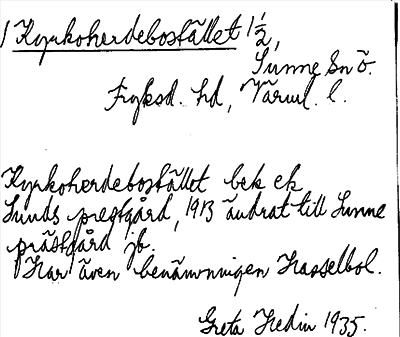 Kyrkoherdebostället 1/2,
Sunne Sn ö.
Fryksd. hd, Värml. l.
Kyrkoherdebostället bek ek
Sunds prestgård, 1913 ändrat till Sunne
prästgård jb.
Har även benämningen Hasselbol.
Greta Hedin 1935.